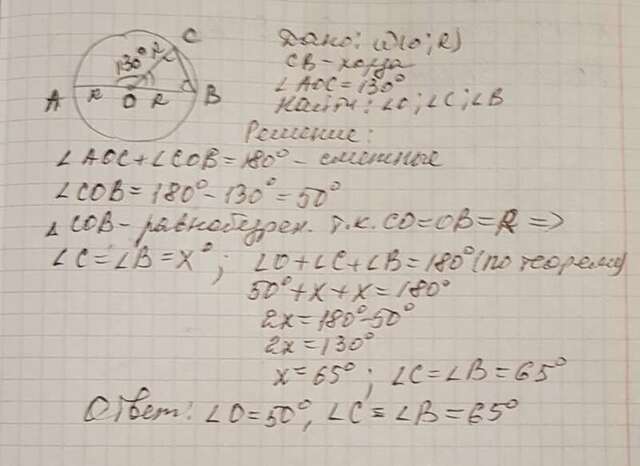 C
130° R
A R O R B
Дано: ω(O; R)
CB - хорда
∠AOC = 130°
Найти: ∠O; ∠C; ∠B
Решение:
∠AOC + ∠COB = 180° - смежные
∠COB = 180° - 130° = 50°
∆COB - равнобедрен. т.к. CO = OB = R =>
∠C = ∠B = x°; ∠O + ∠C + ∠B = 180° (по теореме)
50° + x + x = 180°
2x = 180° - 50°
2x = 130°
x = 65°; ∠C = ∠B = 65°
Ответ: ∠O = 50°, ∠C = ∠B = 65°